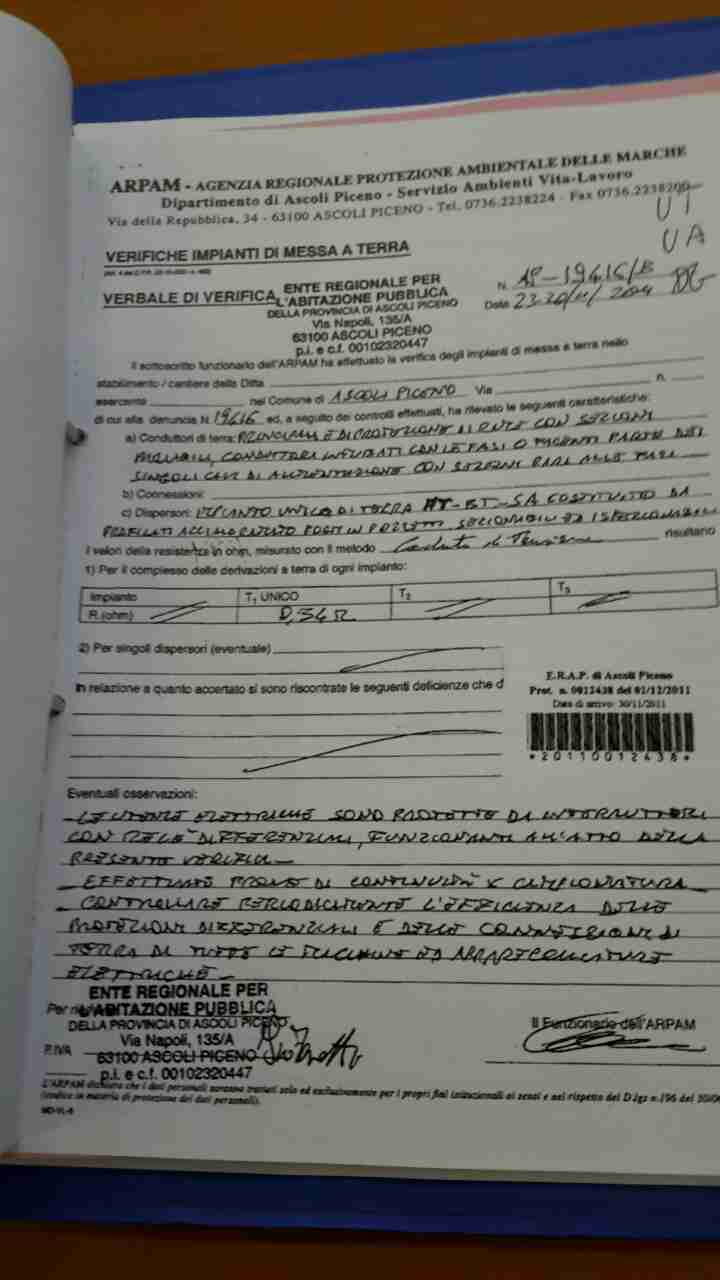 ARPAM - AGENZIA REGIONALE PROTEZIONE AMBIENTALE DELLE MARCHE
Dipartimento di Ascoli Piceno - Servizio Ambienti Vita-Lavoro
Via della Repubblica, 34 - 63100 ASCOLI PICENO - Tel. 0736.2238224 - Fax 0736.2238200
UT
UA
VERIFICHE IMPIANTI DI MESSA A TERRA
VERBALE DI VERIFICA
ENTE REGIONALE PER
L'ABITAZIONE PUBBLICA
DELLA PROVINCIA DI ASCOLI PICENO
Via Napoli, 135/A
63100 ASCOLI PICENO
p.i. e c.f. 00102320447
N. AP-19416/B
Data
Il sottoscritto funzionario dell'ARPAM ha effettuato la verifica degli impianti di messa a terra nello
stabilimento / cantiere della Ditta n.
esercente nel Comune di ASCOLI PICENO Via
di cui alla denuncia N. 19416 ed, a seguito dei controlli effettuati, ha rilevato le seguenti caratteristiche:
a) Conduttori di terra: PRINCIPALI E DI PROTEZIONE CON SEZIONI
CONDUTTORI INFILATI CON LE FASI O FACENTI PARTE DEI
SINGOLI CAVI DI ALIMENTAZIONE CON SEZIONI PARI ALLE FASI
b) Connessioni:
c) Dispersori: IMPIANTO UNICO DI TERRA MT-BT-SA COSTITUITO DA
PROFILATI POSTI IN POZZETTI SEZIONABILI ED ISPEZIONABILI
I valori della resistenza in ohm, misurato con il metodo Caduta di Tensione risultano
1) Per il complesso delle derivazioni a terra di ogni impianto:
Impianto T1 UNICO T2 T3
R.(ohm) 0,34 Ω
2) Per singoli dispersori (eventuale)
In relazione a quanto accertato si sono riscontrate le seguenti deficienze che d
E.R.A.P. di Ascoli Piceno
Prot. n. 0012438 del 01/12/2011
Data di arrivo: 30/11/2011
*20110012438*
Eventuali osservazioni:
- LE UTENZE ELETTRICHE SONO PROTETTE DA INTERRUTTORI
CON RELE' DIFFERENZIALI, FUNZIONANTI ALL'ATTO DELLA
PRESENTE VERIFICA -
- EFFETTUATE PROVE DI CONTINUITÀ X CAMPIONATURA
- CONTROLLARE PERIODICAMENTE L'EFFICIENZA DELLE
PROTEZIONI DIFFERENZIALI E DELLE CONNESSIONI DI
TERRA DI TUTTE LE MACCHINE ED APPARECCHIATURE
ELETTRICHE -
ENTE REGIONALE PER
L'ABITAZIONE PUBBLICA
DELLA PROVINCIA DI ASCOLI PICENO
Via Napoli, 135/A
P.IVA 63100 ASCOLI PICENO
p.i. e c.f. 00102320447
Il Funzionario dell'ARPAM
L'ARPAM dichiara che i dati personali saranno trattati solo ed esclusivamente per i propri fini istituzionali ai sensi e nel rispetto del D.lgs n.196 del
(codice in materia di protezione dei dati personali).